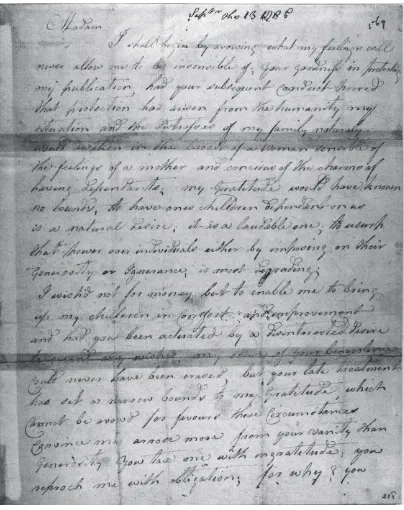 Septbr the 13 1786
569
Madam
I shall begin by avowing what my feelings will
never allow me to be insensible of, your goodness in protecting
my publication, had your subsequent conduct proved
that protection had risen from the humanity my
situation and the distresses of my family naturaly
would in the breast of a woman sensible of
the feelings of a mother and concious of the charms of
having dependants; my Gratitude would have known
no bounds, to have ones children dependant on us
is a natural desire; it is a laudable one, to usurp
that power over individuals either by imposing on their
Generosity or Ignorance, is most degrading;
I wish'd not for money, but to enable me to bring
up my children in comfort and improvement
and had you been actuated by a disinterested desire
to my wishes my sense of your benevolence
could never have been erased, but your late treatment
has set a narrow bounds to my Gratitude, which
cannot be avow'd for favours these Circumstances
Convince me arrose more from your vanity than
Generosity You tax me with ingratitude; you
reproch me with obligations; for why? you
215